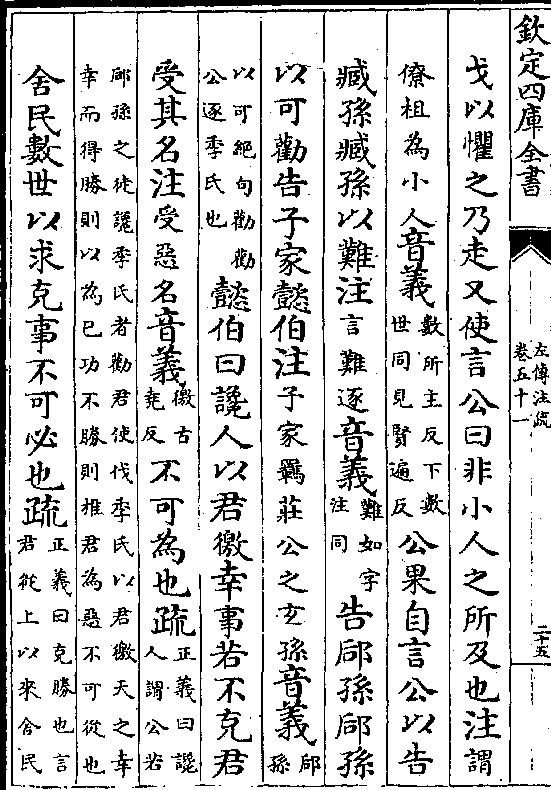 欽定四庫全書
左傳注疏
卷五十一
二十五
戈以懼之乃走又使言公曰非小人之所及也注謂
僚柤為小人音義數所主反下數世同見賢遍反公果自言公以告
臧孫臧孫以難注言難逐音義難如字注同告郈孫郈孫
以可勸告子家懿伯注子家羈莊公之玄孫音義郈孫
以可絶句勸勸公逐季氏也懿伯曰讒人以君徼幸事若不克君
受其名注受惡名音義徼古堯反不可為也疏正義曰讒人謂公若
郈孫之徒讒季氏者勸君使伐季氏以君徼天之幸幸而得勝則以為已功不勝則推君為惡不可從也
舍民數世以求克事不可必也疏正義曰克勝也言君從上以來舍民